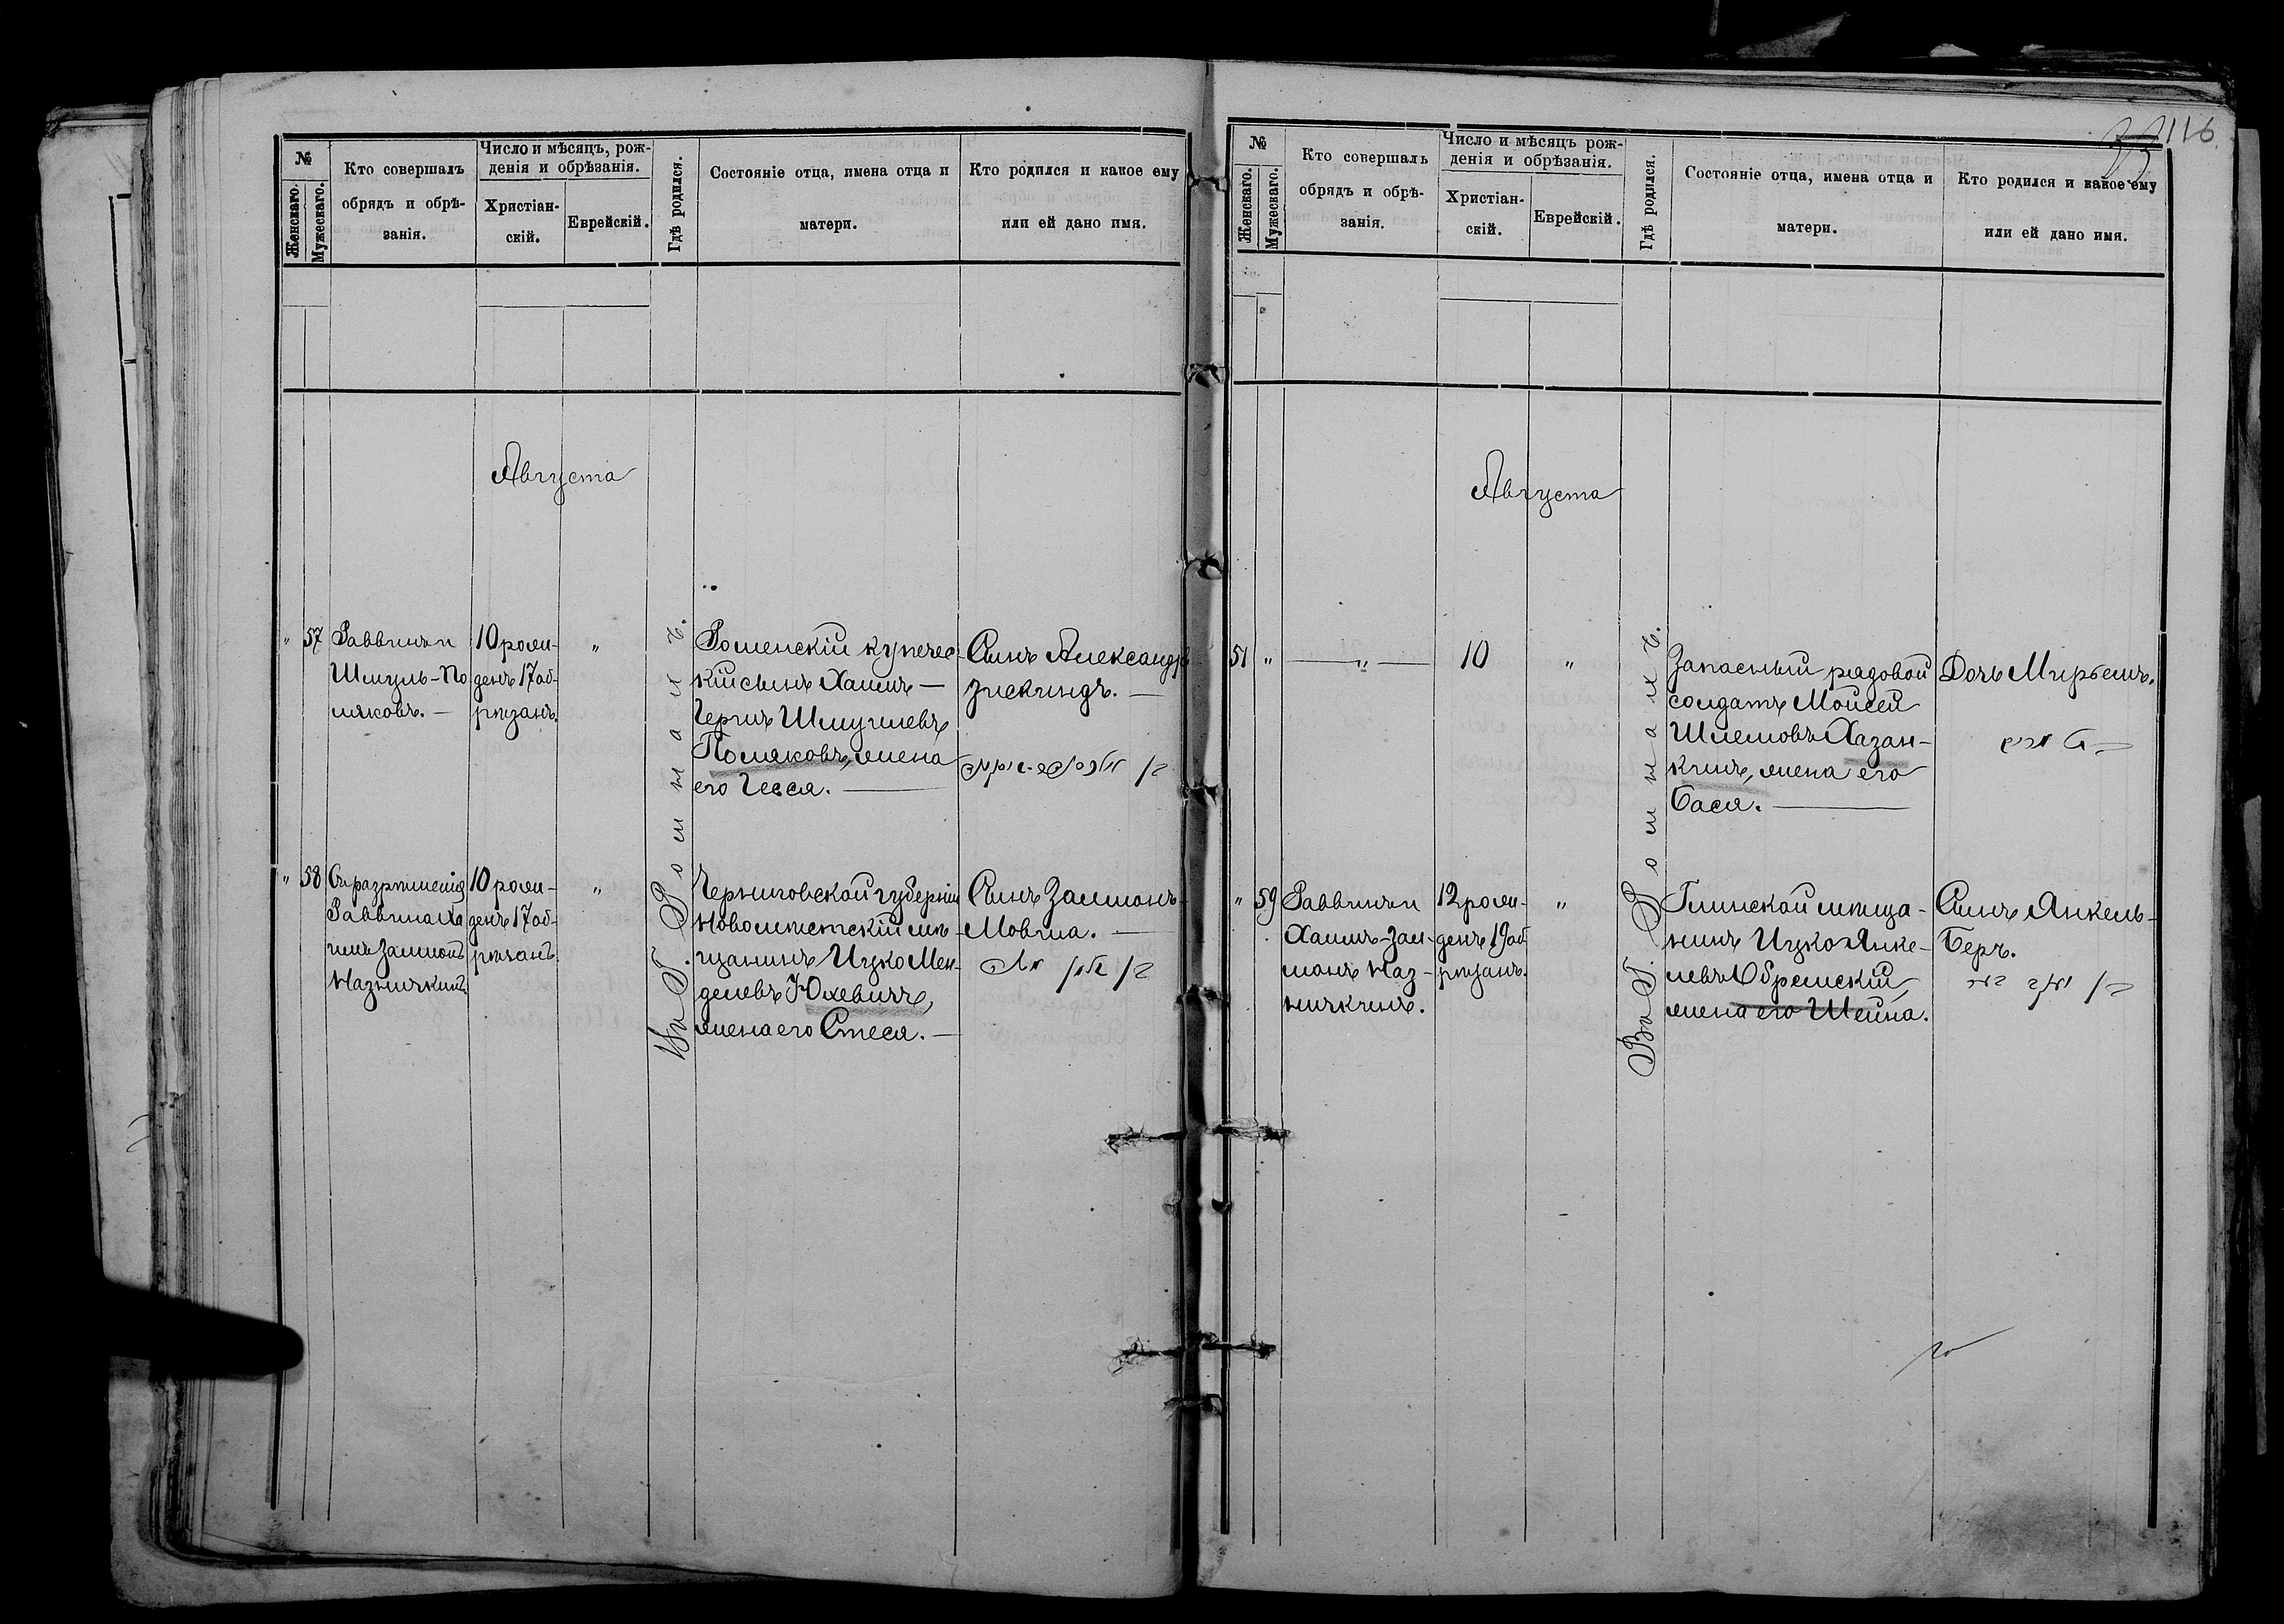 №
Женскаго.
Мужескаго.
Кто совершалъ
обрядъ и обрѣ-
занія.
Число и мѣсяцъ, рож-
денія и обрѣзанія.
Христіан-
скій.
Еврейскій.
Гдѣ родился.
Состояніе отца, имена отца и
матери.
Кто родился и какое ему
или ей дано имя.
Августа
"
57
Раввинъ
Шмуль-По
ляковъ. —
10 рож-
денъ 17 об-
рѣзанъ.
"
Роменскій купечес-
кій сынъ Хаимъ —
Герцъ Шмуилевъ
Поляковъ, жена
его Гесся. —
Сынъ Александръ
Зискиндъ. —
"
58
Съ разрѣшенія
Раввина Ха
имъ Залмонъ
Назыпкинъ
10 рож-
денъ 17 об-
рѣзанъ
"
Черниговской губерніи
Новомѣстскій мѣ-
щанинъ Ицко Мен-
делевъ Юхевичъ,
жена его Стеся. —
Сынъ Залмонъ-
Мовша. —
בן זלמן משה
Въ Г. Ромнахъ.
33 116
№
Женскаго.
Мужескаго.
Кто совершалъ
обрядъ и обрѣ-
занія.
Число и мѣсяцъ рож-
денія и обрѣзанія.
Христіан-
скій.
Еврейскій.
Гдѣ родился.
Состояніе отца, имена отца и
матери.
Кто родился и какое ему
или ей дано имя.
Августа
51
"
— " —
10
"
Запасный рядовой
солдатъ Мойсей
Шлемовъ Хазан-
кинъ, жена его
Бася. —
Дочь Мирьемъ.
בת מרים
"
59
Раввинъ
Хаимъ-Зал-
монъ Наз-
ыпкинъ.
12 рож-
денъ 19 об
рѣзанъ.
"
Глинской мѣща-
нинъ Ицко Янке-
левъ Обремскій,
жена его Шейна.
Сынъ Янкель-
Беръ.
Въ Г. Ромнахъ.